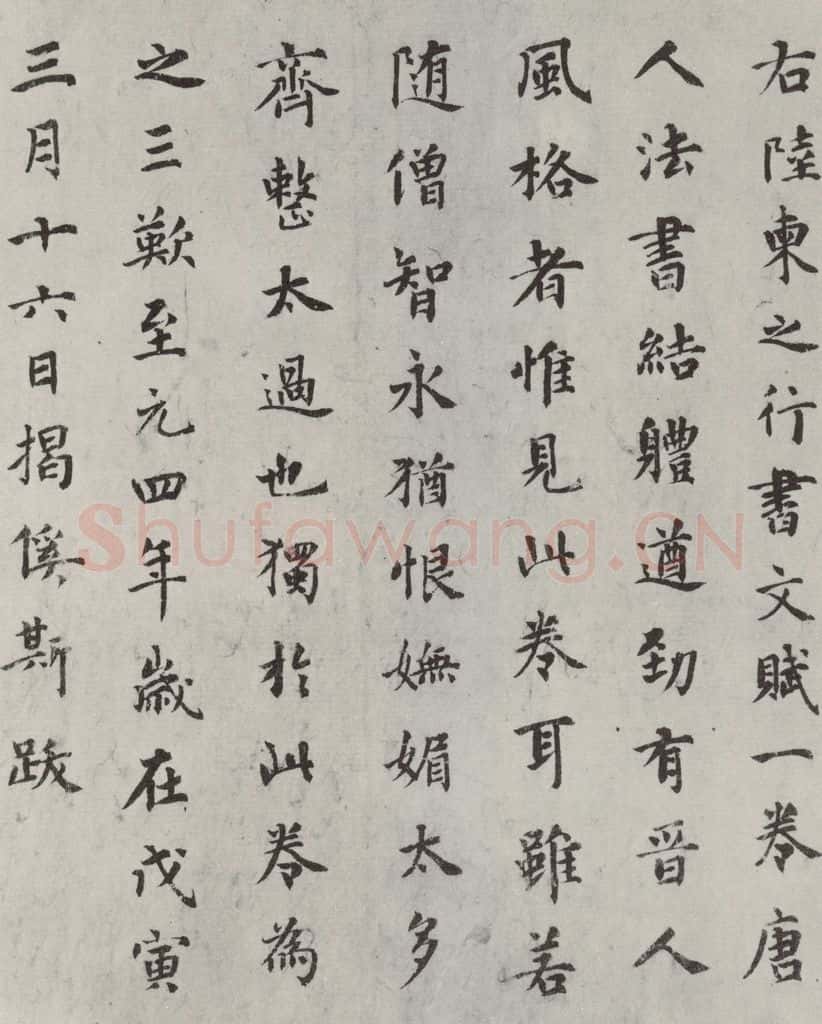 右陸柬之行書文賦一卷唐
人法書結體遒勁有晉人
風格者惟見此卷耳雖若
隨僧智永猶恨嫵媚太多
齊整太過也獨於此卷為
之三歎至元四年歲在戊寅
三月十六日揭傒斯跋
Shufawang.CN